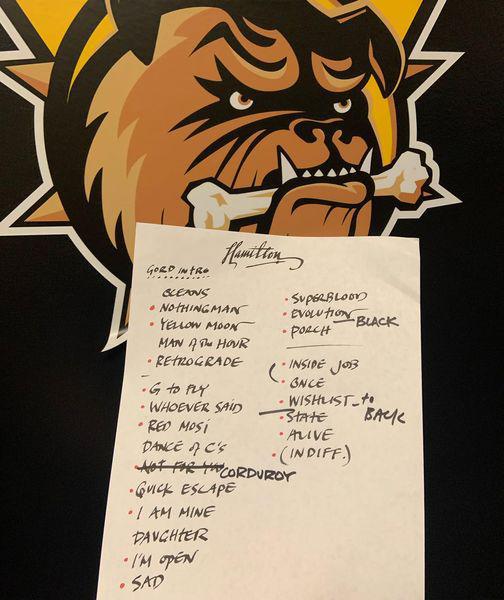 Hamilton
GORD INTRO
OCEANS
NOTHINGMAN
YELLOW MOON
MAN of the HOUR
RETROGRADE
G TO FLY
WHOEVER SAID
RED MOSi
DANCE of C's
NOT FOR YOU CORDUROY
QUICK ESCAPE
I AM MINE
DAUGHTER
I'M OPEN
SAD
SUPERBLOOD
EVOLUTION
PORCH BLACK
INSIDE JOB
ONCE
WISHLIST to
STATE BACK
ALIVE
(INDIFF.)